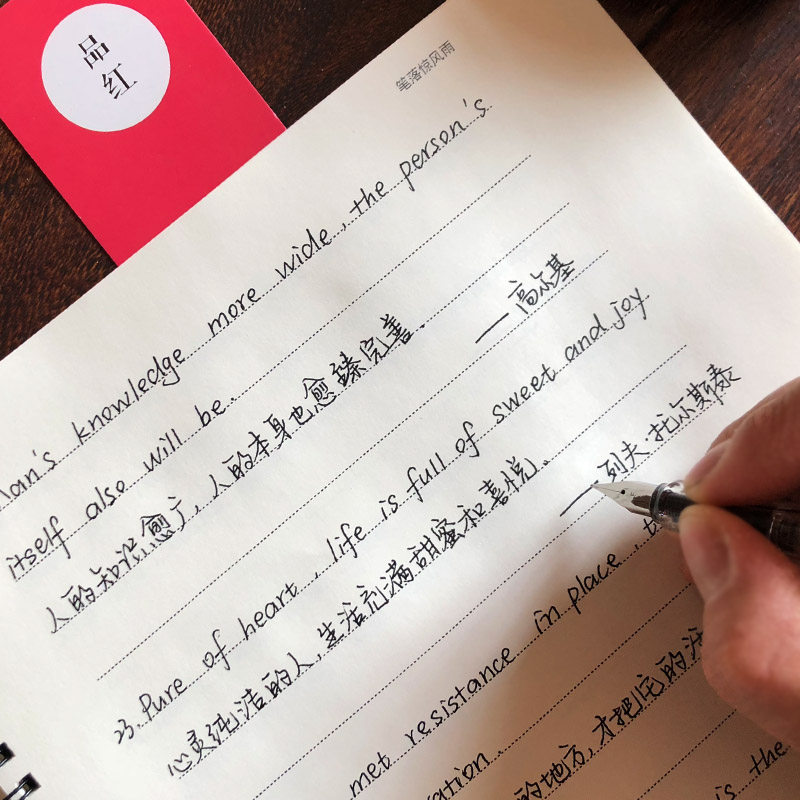 品红
笔落惊风雨
an's knowledge more wide, the person's
itself also will be.
人的知识愈广,人的本身也愈臻完善.
——高尔基
23. Pure of heart, life is full of sweet and joy
心灵纯洁的人,生活充满甜蜜和喜悦。
——列夫.托尔斯泰
met resistance in place,
的地方,才把它的
is the